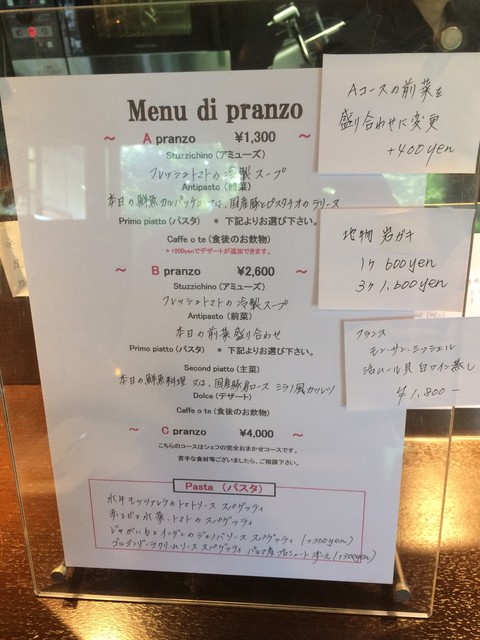 Menu di pranzo
～ A pranzo ¥1,300 ～
Stuzzichino (アミューズ)
フレッシュトマトの冷製スープ
Antipasto (前菜)
本日の鮮魚カルパッチョ 又は、国産豚とピスタチオのテリーヌ
Primo piatto (パスタ) ＊ 下記よりお選び下さい。
Caffe o te (食後のお飲物)
＊+200yenでデザートが追加できます。
～ B pranzo ¥2,600 ～
Stuzzichino (アミューズ)
フレッシュトマトの冷製スープ
Antipasto (前菜)
本日の前菜盛り合わせ
Primo piatto (パスタ) ＊ 下記よりお選び下さい。
Second piatto (主菜)
本日の鮮魚料理 又は、国産豚肩ロース ミラノ風カツレツ
Dolce (デザート)
Caffe o te (食後のお飲物)
～ C pranzo ¥4,000 ～
こちらのコースはシェフの完全おまかせコースです。
苦手な食材等ございましたら、ご相談下さい。
Pasta (パスタ)
水牛モッツァレラのトマトソース スパゲッティ
赤エビと水菜、トマトのスパゲッティ
じゃがいもとインゲンのジェノバソース スパゲッティ (+300yen)
ゴルゴンゾーラクリームソース スパゲッティ パルマ産プロシュート添え (+300yen)
Aコースの前菜を
盛り合わせに変更
+400yen
地物 岩ガキ
1ケ 600yen
3ケ 1,600yen
フランス
モン・サン・ミッシェル
活ムール貝 白ワイン蒸し
¥1,800－